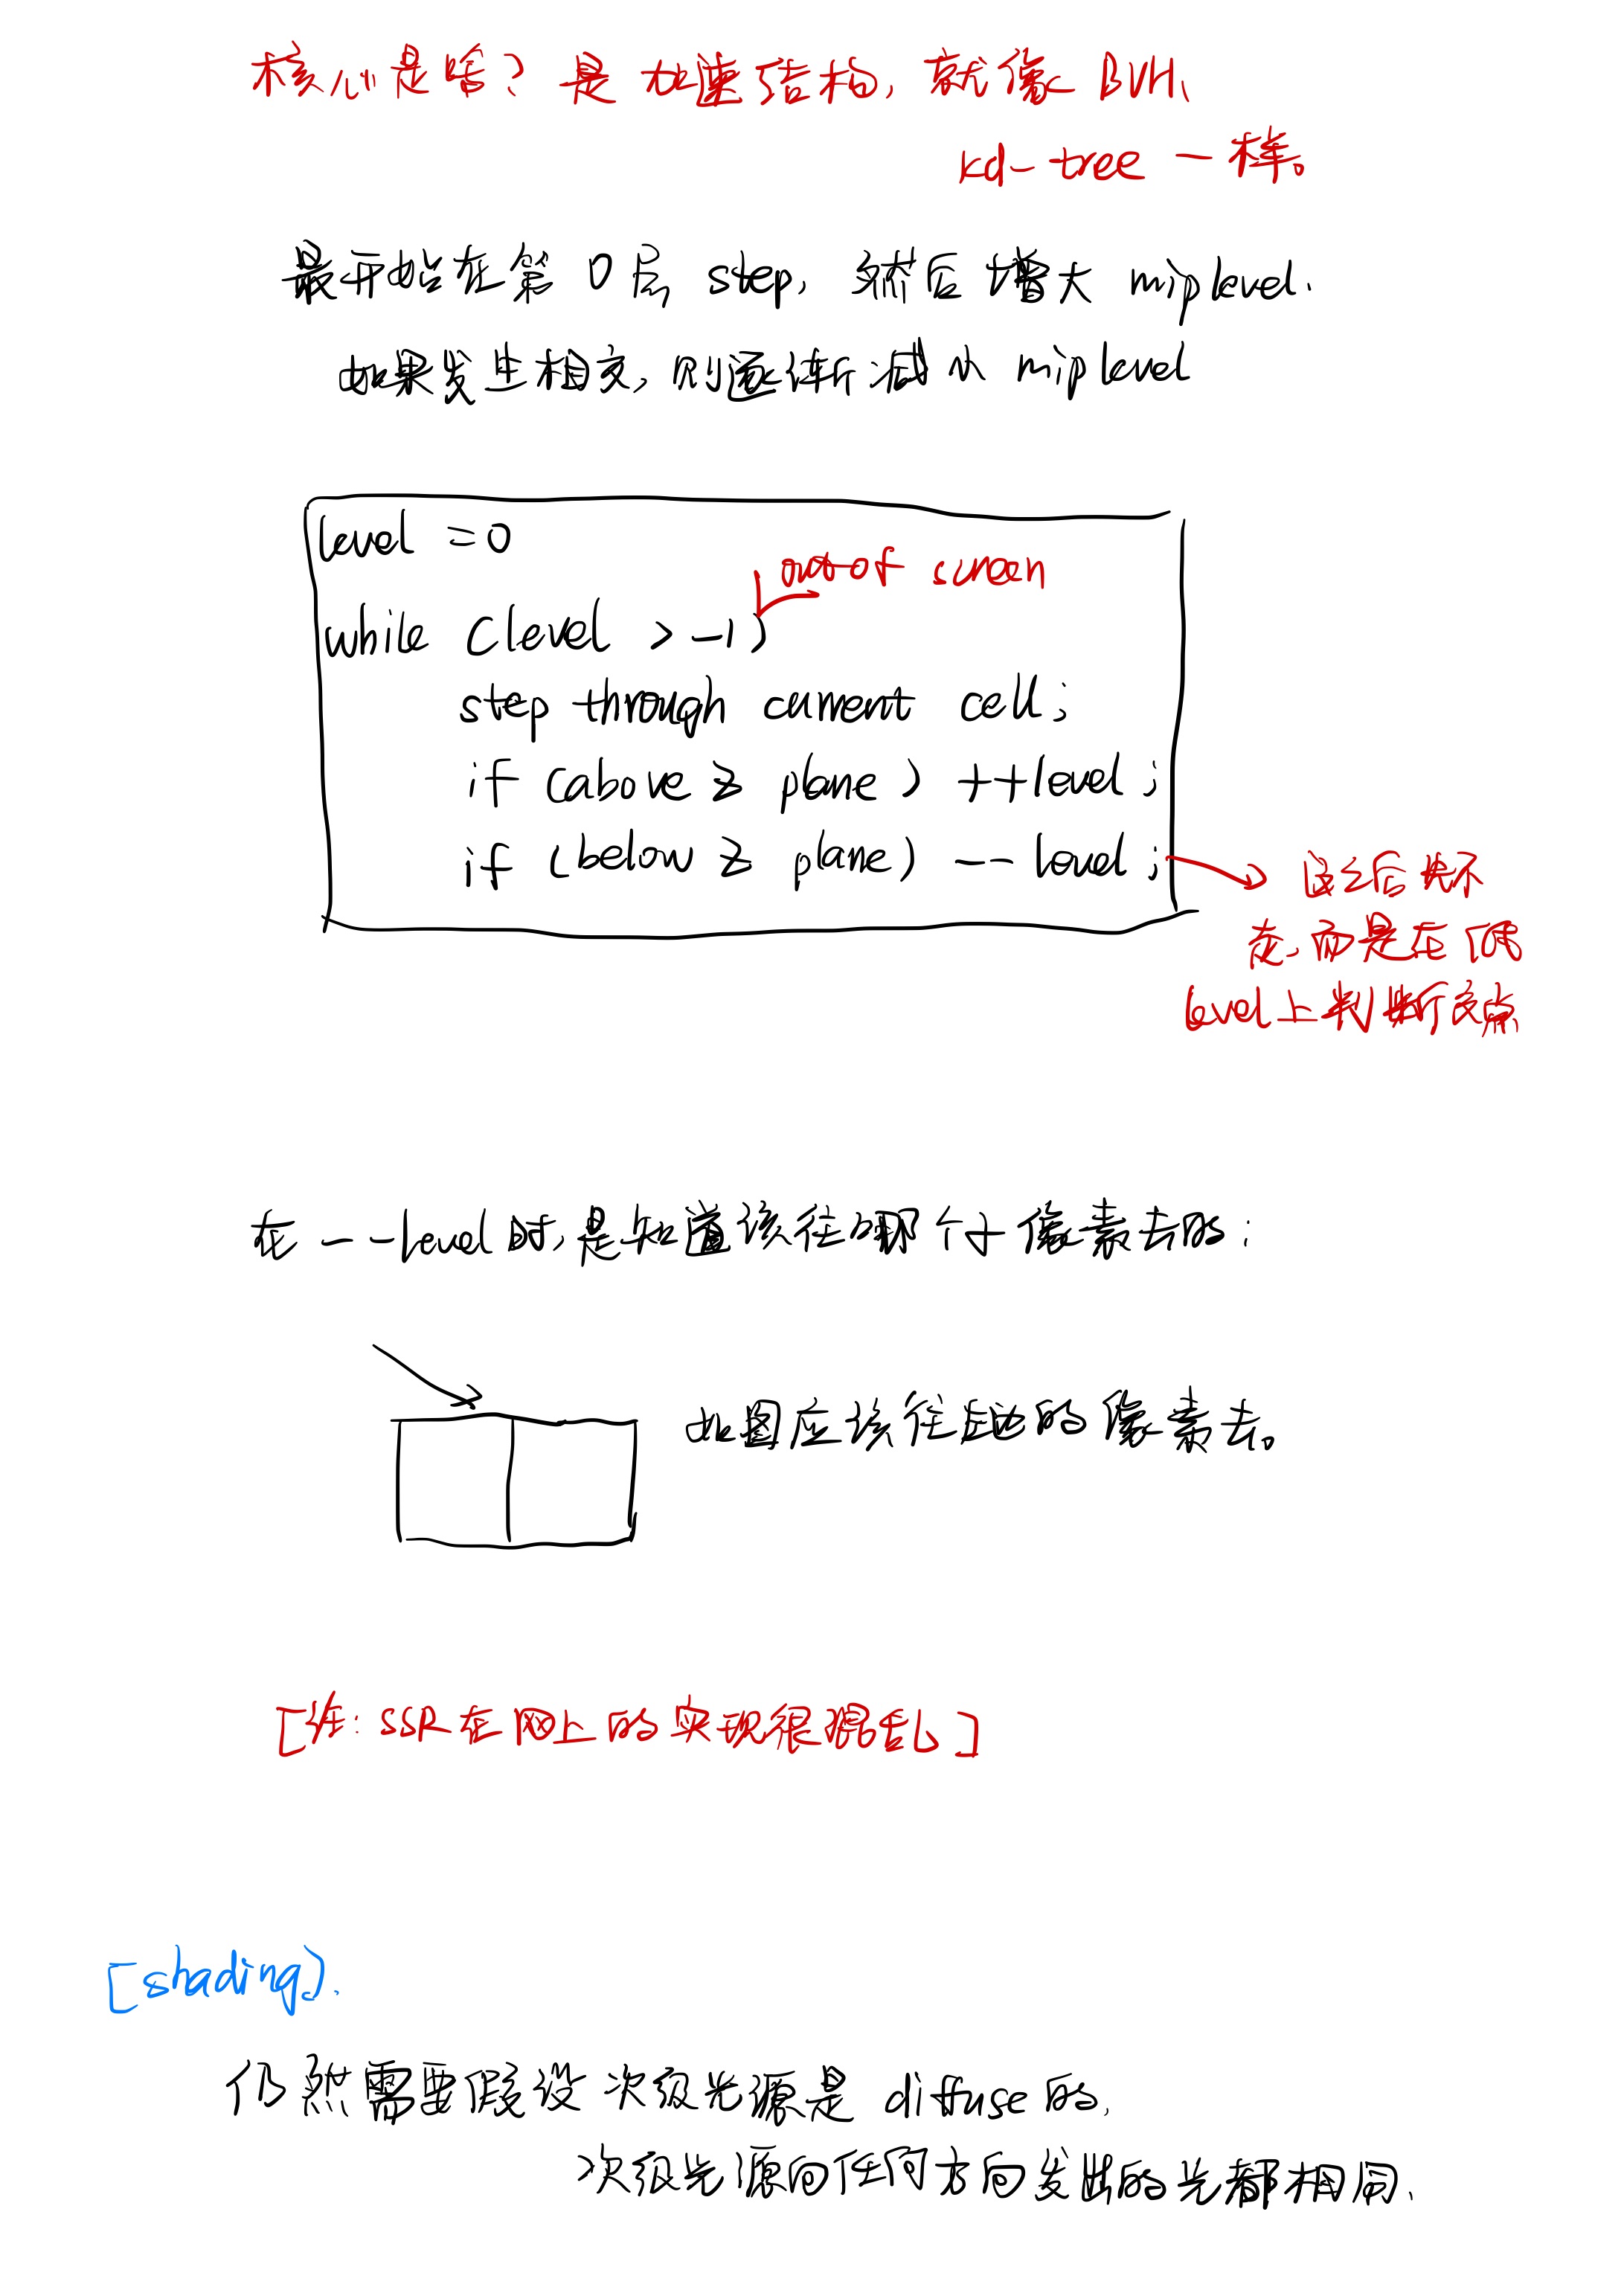 核心是啥？是加速结构，就像BVH、
kd-tree一样。
最开始在第0层step，然后增大miplevel.
如果发生相交，则逐渐减小miplevel
level =0
out of screen
while (level > -1)
step through current cell;
if (above Z plane) ++level;
if (below Z plane) --level;
这之后先不
走，而是在低
level上判断交点
在--level时，是知道该往哪个子像素去的：
如图应该往左边的像素去。
[注：SSR在网上的实现很混乱]
[shading].
仍然需要假设次级光源是diffuse的，
次级光源向任何方向发出的光都相同.